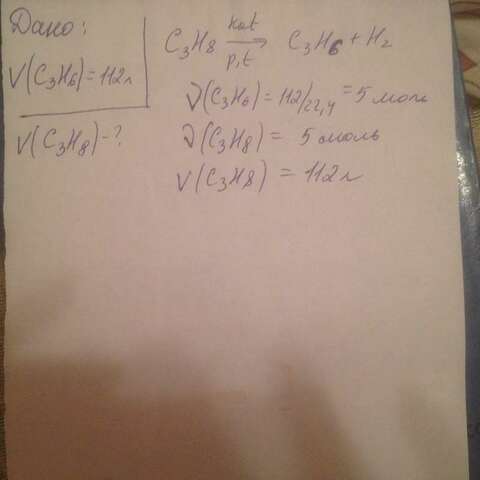 Дано:
V(C₃H₆)=112л
V(C₃H₈)-?
C₃H₈ kat → p,t C₃H₆ + H₂
ν(C₃H₆) = 112/22,4 = 5 моль
ν(C₃H₈) = 5 моль
V(C₃H₈) = 112л